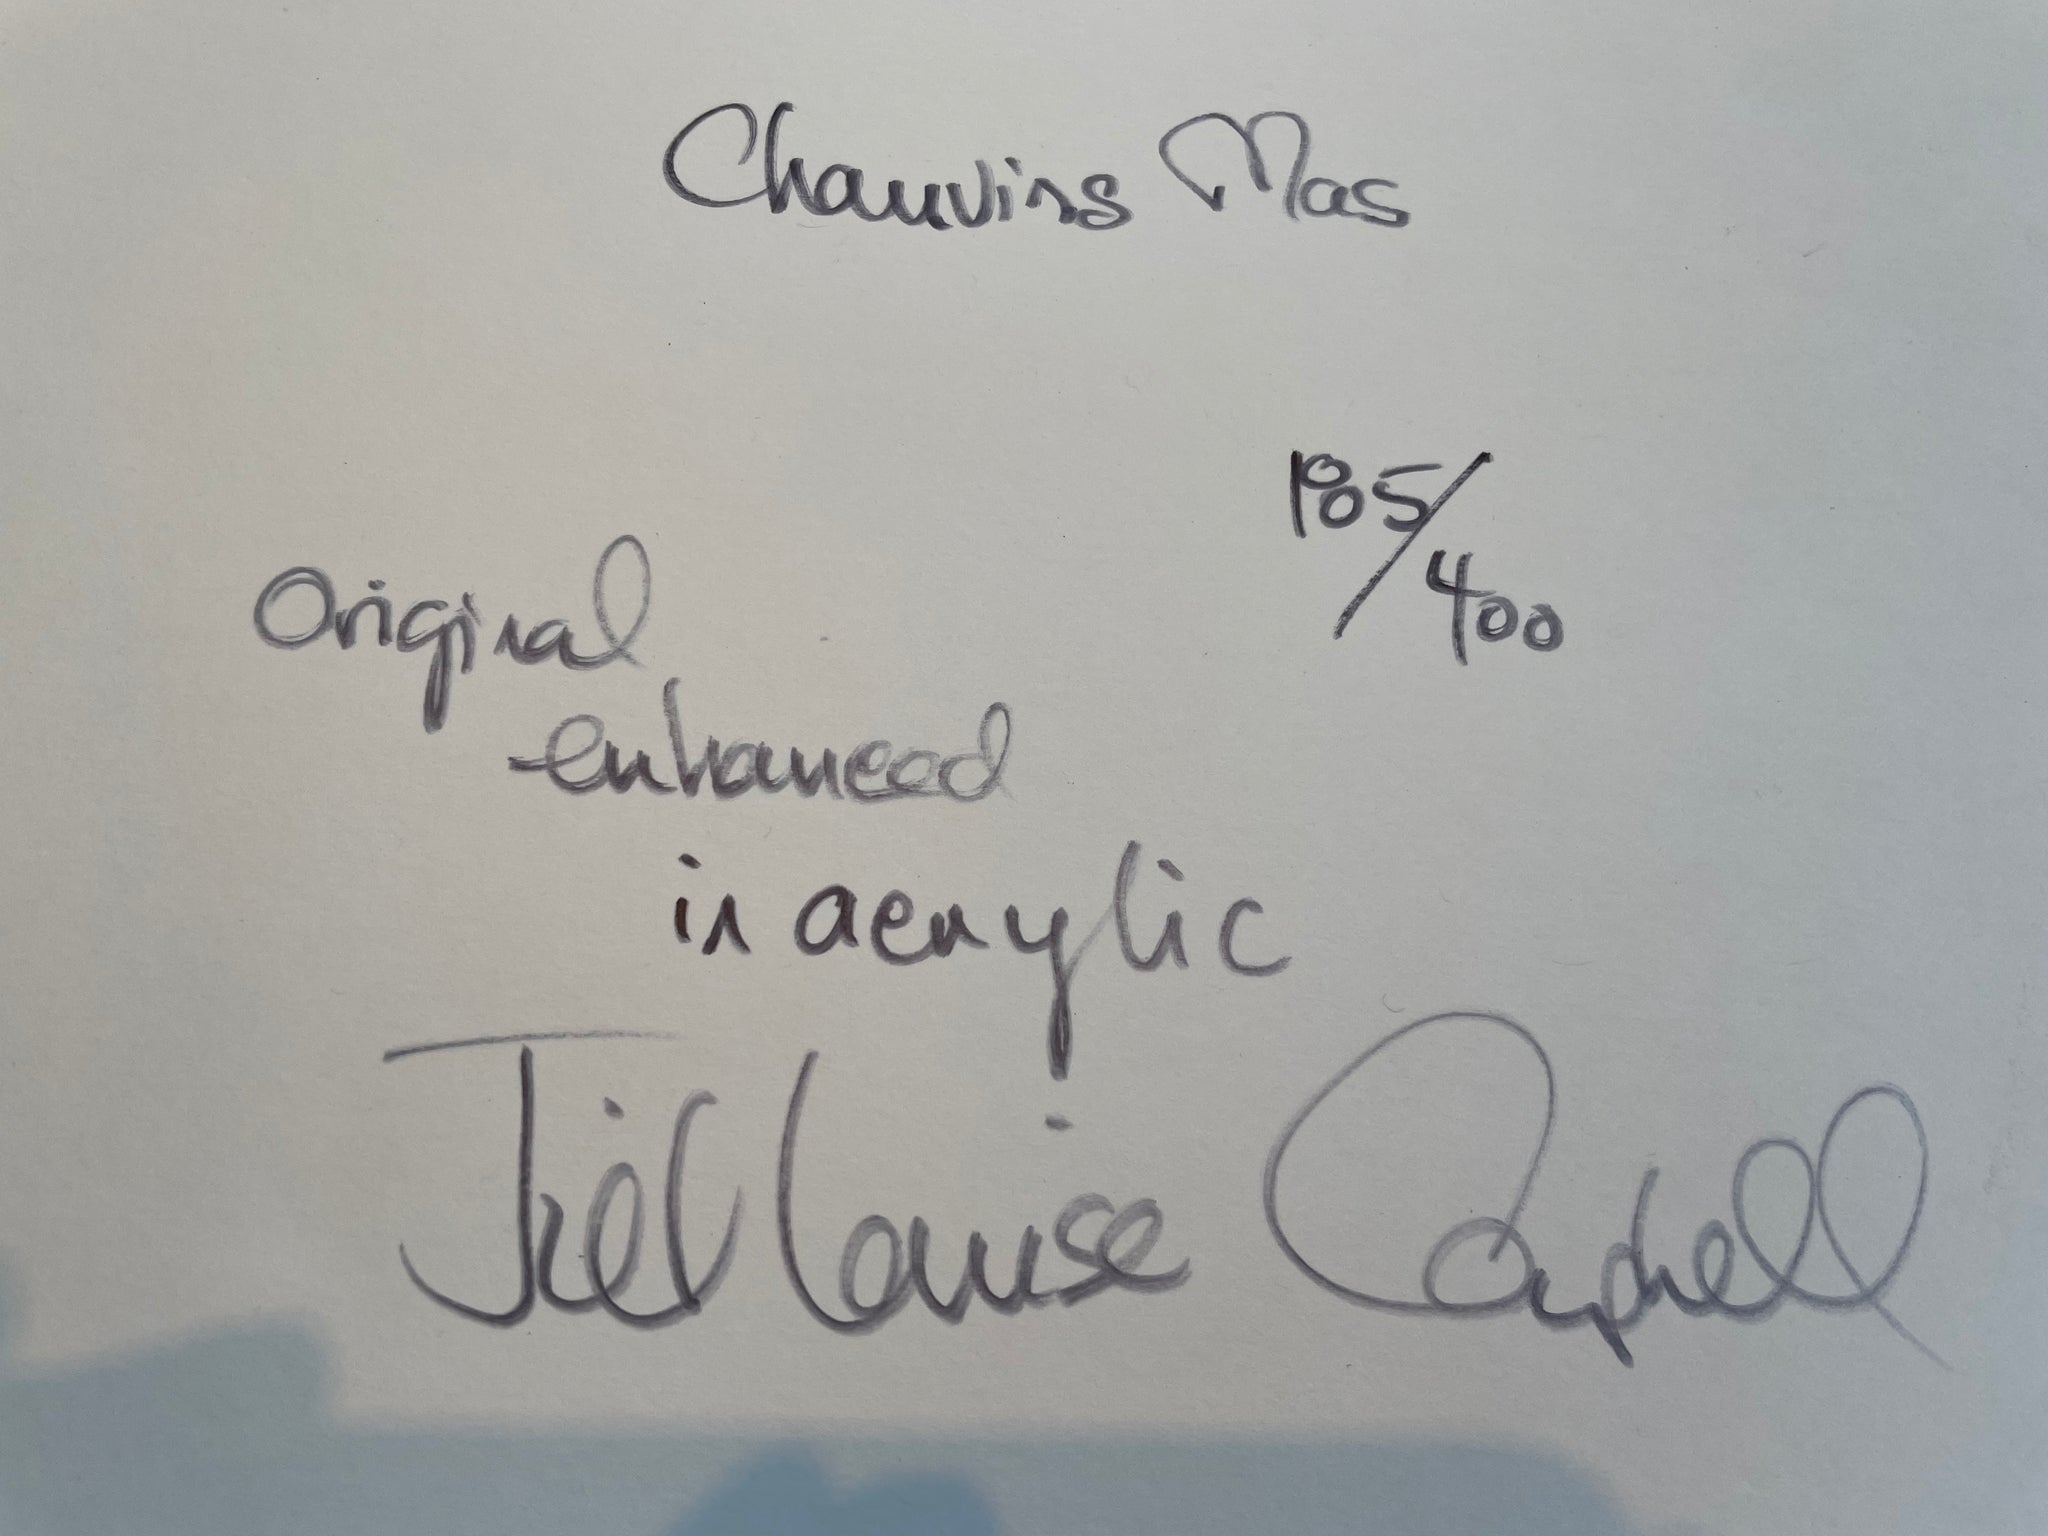 Chauvins Mas
185/400
Original
enhanced
in acrylic
Jill Louise Campbell